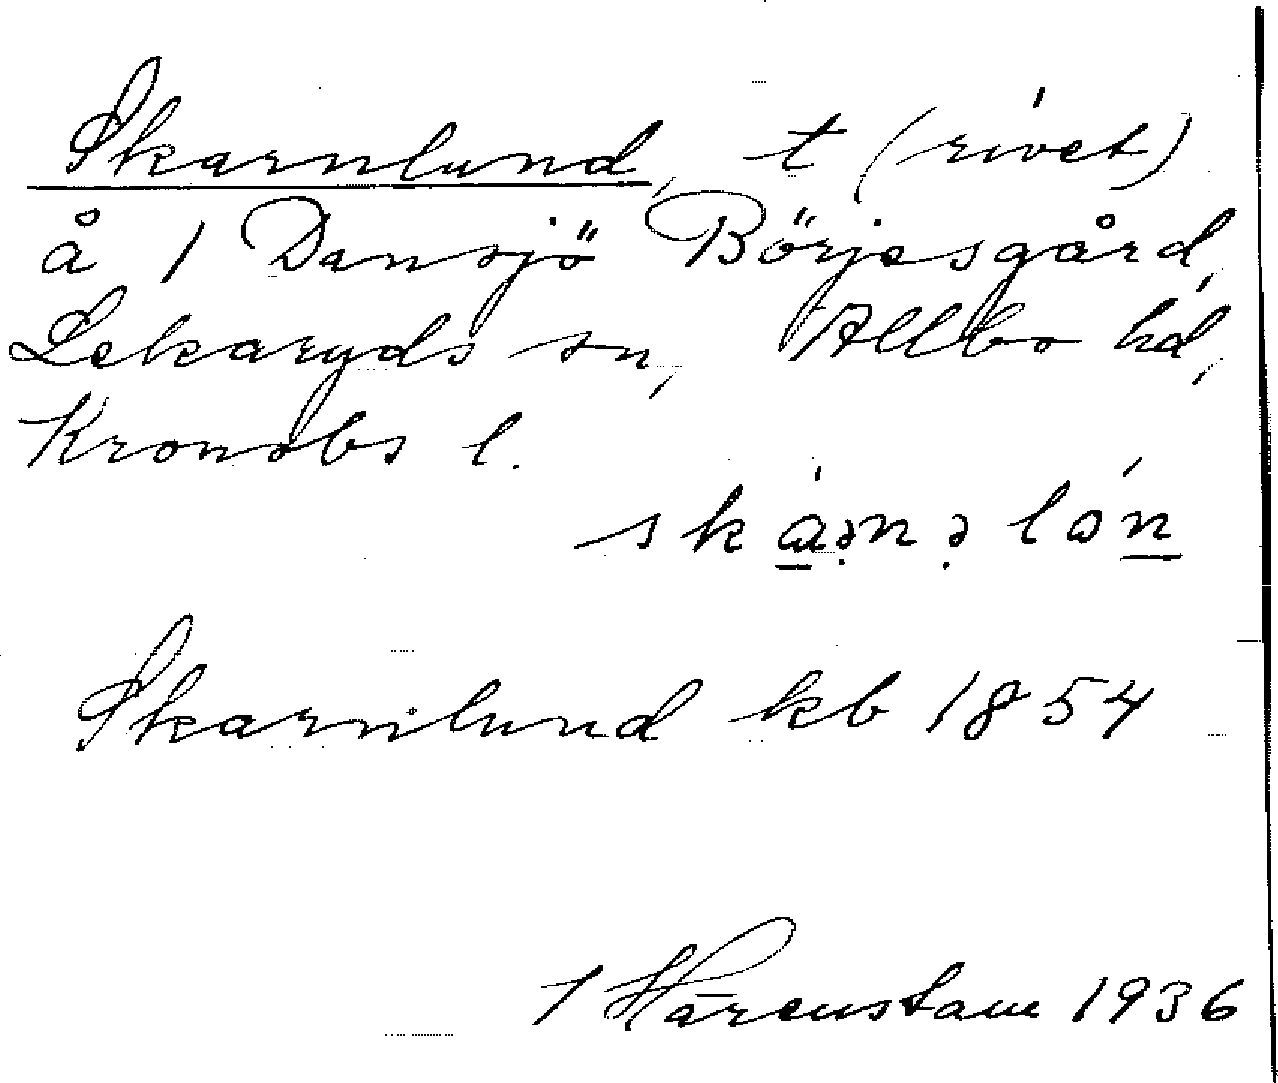 Skarnlund, t (rivet)
å 1 Dansjö Börjesgård,
Lekaryds sn, Allbo hd,
Kronobs l.
Skarnlund kb 1854
Härenstam 1936